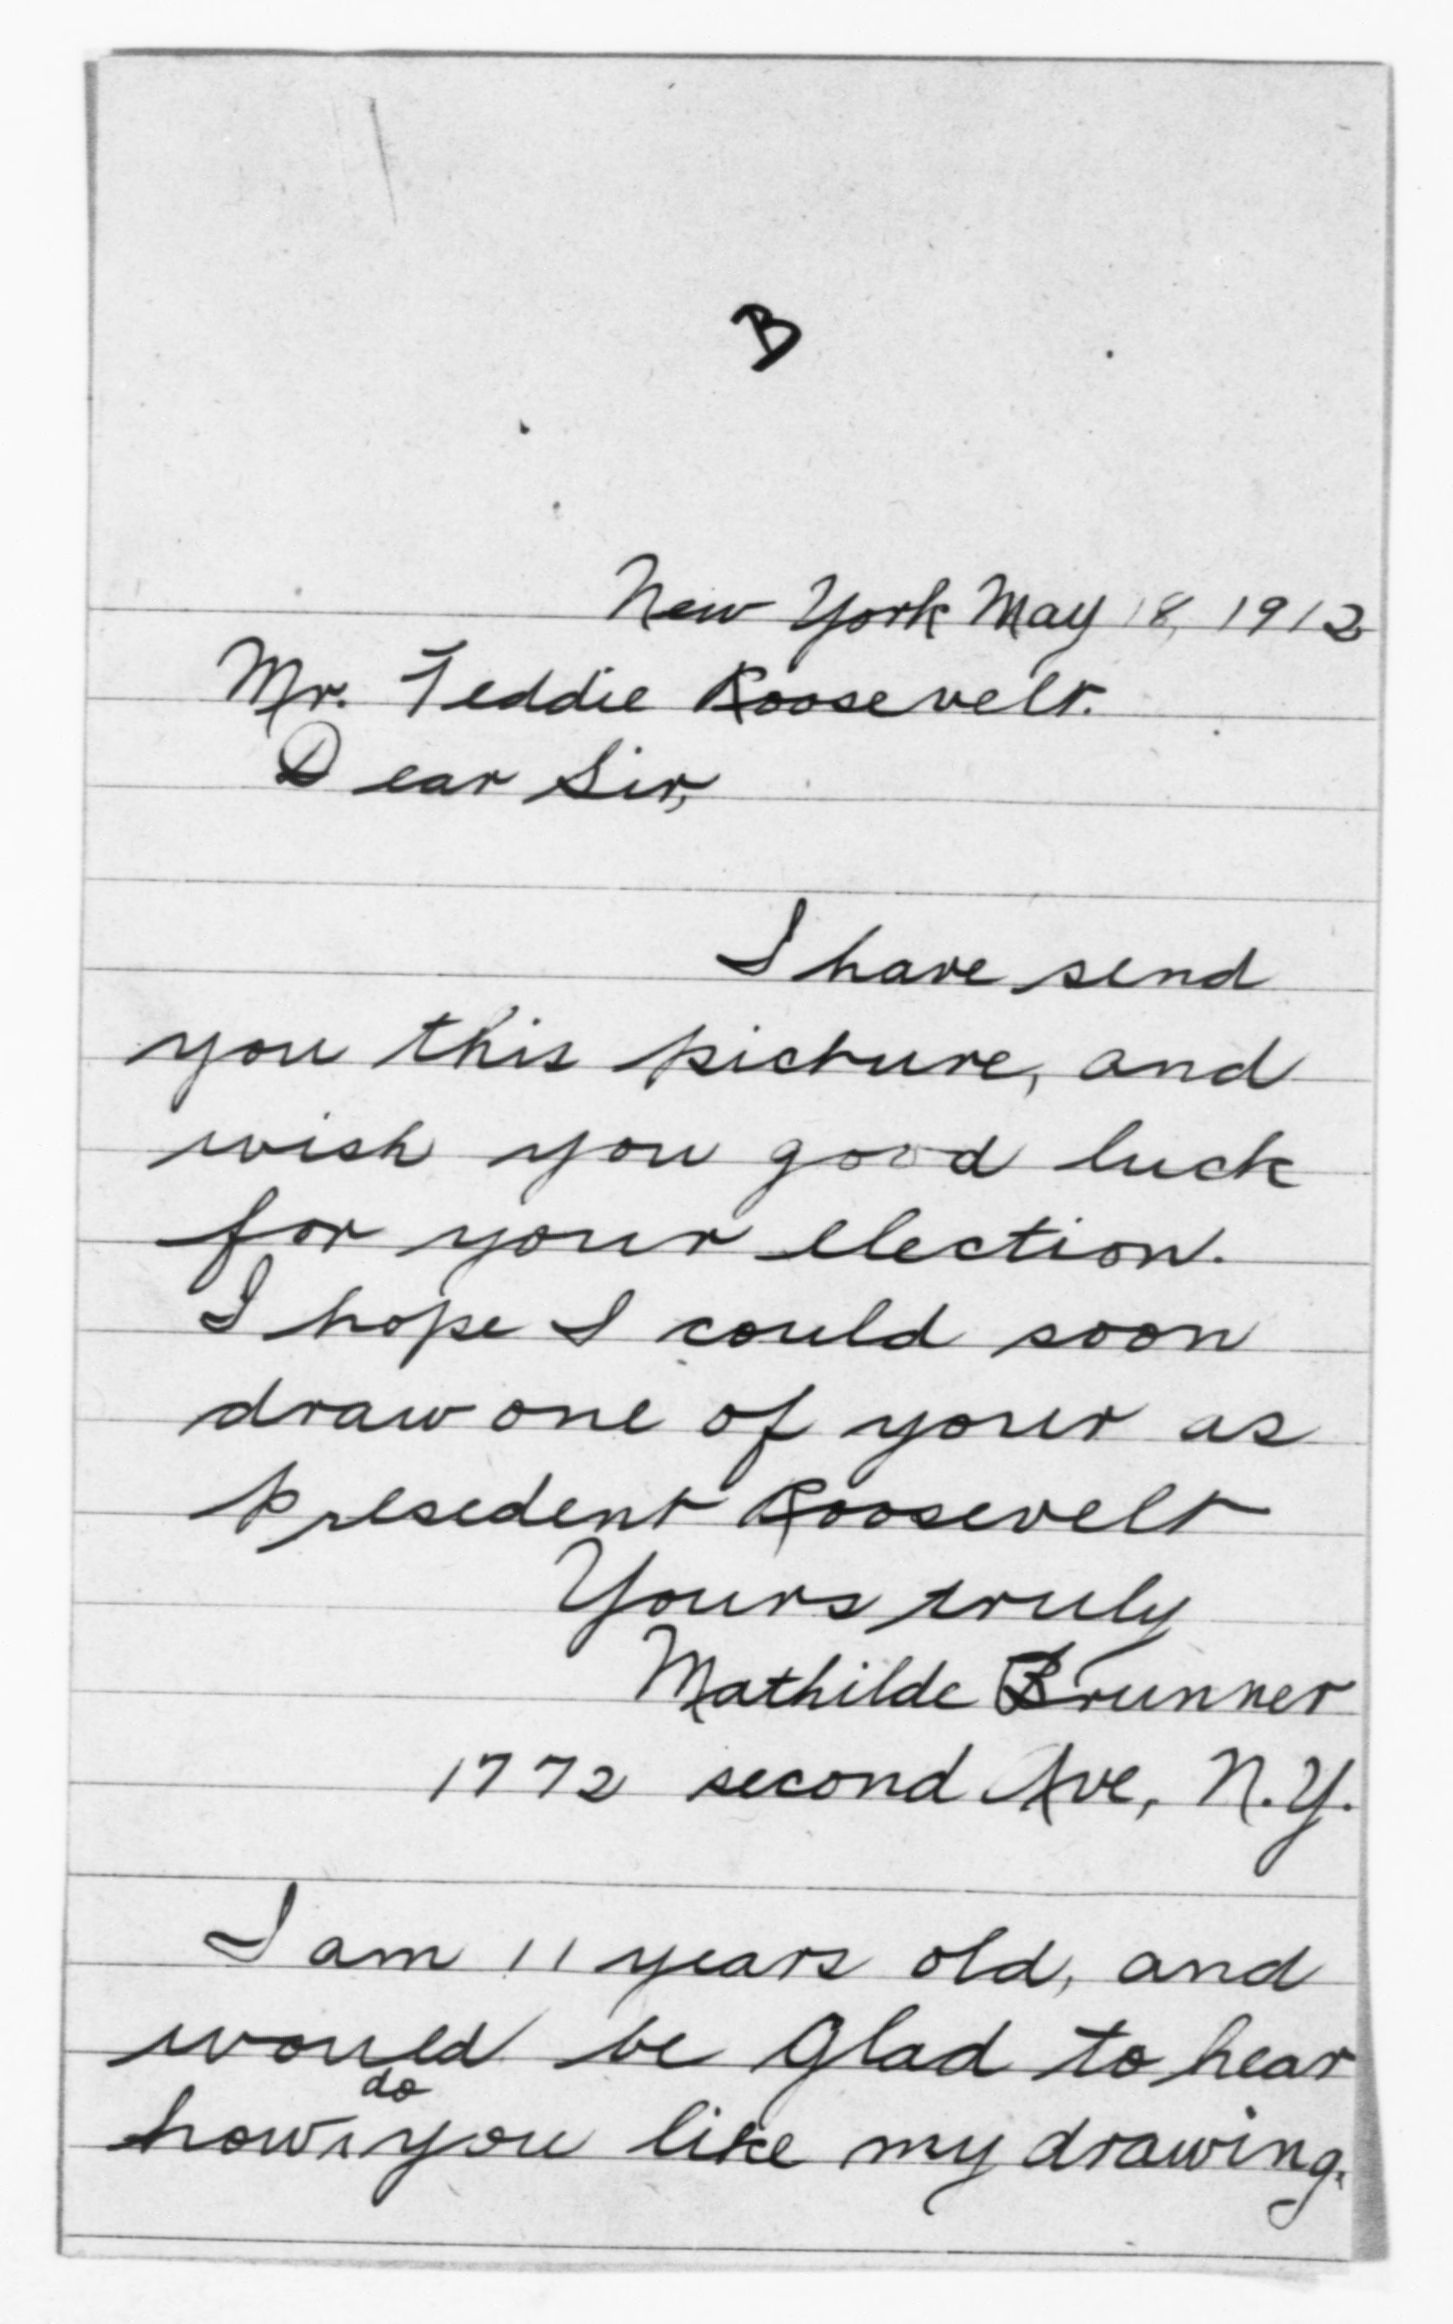 B
New York May 18, 1912
Mr. Teddie Roosevelt.
Dear Sir,
I have send
you this picture, and
wish you good luck
for your election.
I hope I could soon
draw one of your as
presedent Roosevelt
Yours truly
Mathilde Brunner
1772 second Ave, N.Y.
I am 11 years old, and
would be glad to hear
how do you like my drawing.